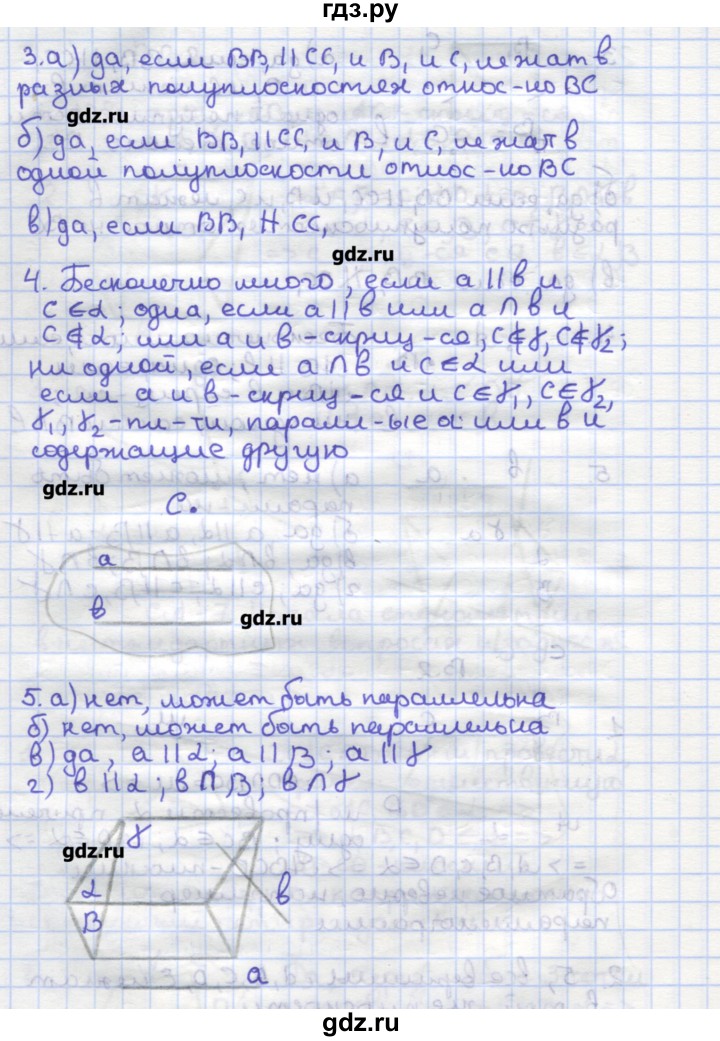 гдз.ру
3. а) да, если BB₁ || CC₁ и B₁ и C₁ лежат в
разных полуплоскостях относ-но BC
gdz.ru
б) да, если BB₁ || CC₁ и B₁ и C₁ лежат в
одной полуплоскости относ-но BC
в) да, если BB₁ ∦ CC₁
gdz.ru
4. Бесконечно много, если a || в и
C ∈ α; одна, если a || в или a ∩ в и
C ∉ α; или a и в - скрещ-ся, C ∉ γ₁, C ∉ γ₂;
ни одной, если a ∩ в и C ∈ α или
если a и в - скрещ-ся и C ∈ γ₁, C ∈ γ₂,
γ₁, γ₂ - пл-ти, паралл-ые a или в и
содержащие другую
gdz.ru
C.
a
в
gdz.ru
5. а) нет, может быть параллельна
б) нет, может быть параллельна
в) да, a || α; a || β; a || γ
г) в || α; в ∩ β; в ∩ γ
γ
gdz.ru
α
в
β
a
gdz.ru